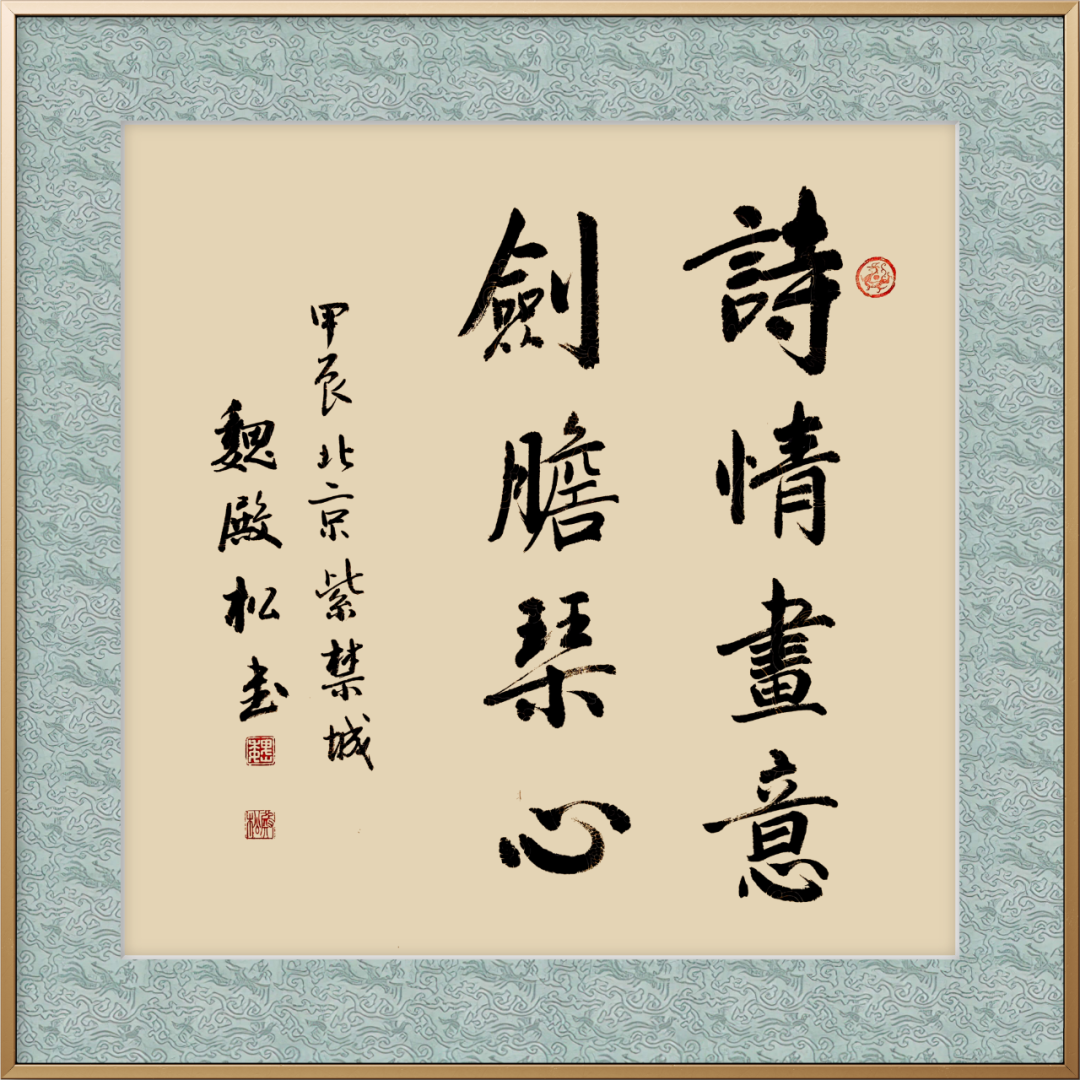 詩情畫意
劍膽琴心
甲辰北京紫禁城
魏殿松書
魏
殿松